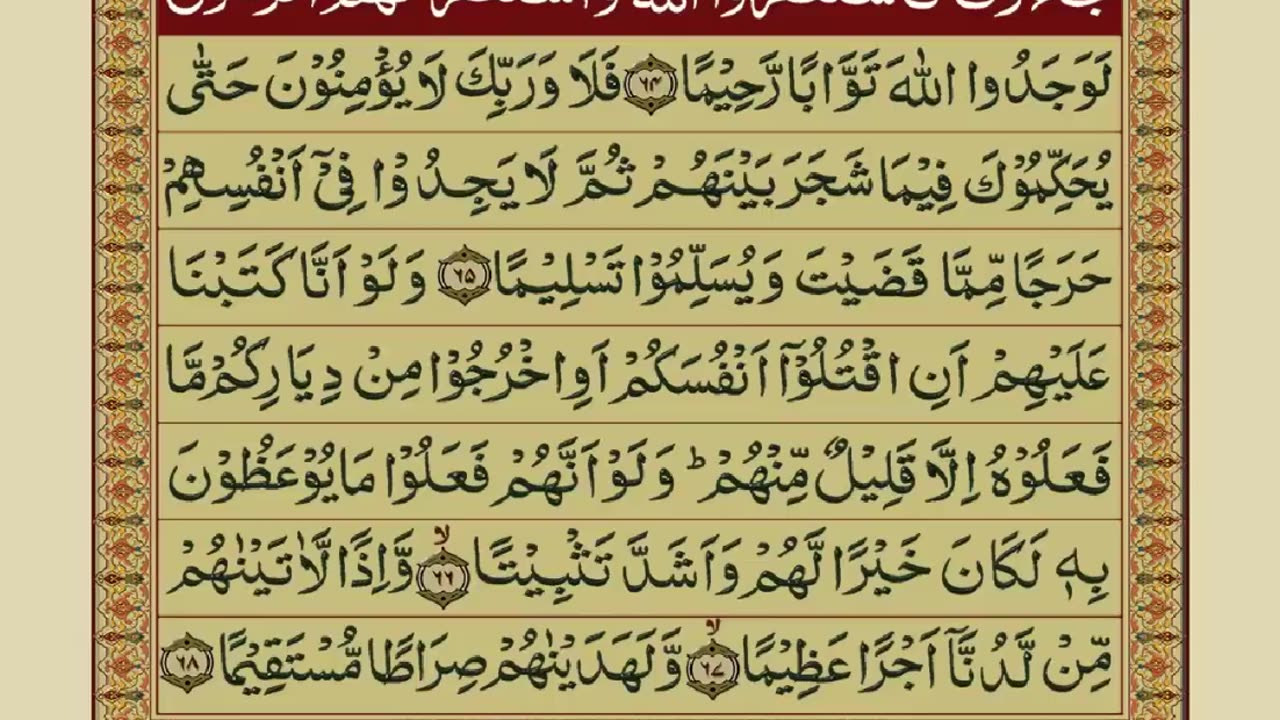 جَآءُوْكَ فَاسْتَغْفَرُوا اللّٰهَ وَاسْتَغْفَرَ لَهُمُ الرَّسُوْلُ
لَوَجَدُوا اللّٰهَ تَوَّابًا رَّحِيْمًا ﴿٦٤﴾ فَلَا وَرَبِّكَ لَا يُؤْمِنُوْنَ حَتّٰى
يُحَكِّمُوْكَ فِيْمَا شَجَرَ بَيْنَهُمْ ثُمَّ لَا يَجِدُوْا فِىْٓ اَنْفُسِهِمْ
حَرَجًا مِّمَّا قَضَيْتَ وَيُسَلِّمُوْا تَسْلِيْمًا ﴿٦٥﴾ وَلَوْ اَنَّا كَتَبْنَا
عَلَيْهِمْ اَنِ اقْتُلُوْٓا اَنْفُسَكُمْ اَوِ اخْرُجُوْا مِنْ دِيَارِكُمْ مَّا
فَعَلُوْهُ اِلَّا قَلِيْلٌ مِّنْهُمْ ؕ وَلَوْ اَنَّهُمْ فَعَلُوْا مَا يُوْعَظُوْنَ
بِهٖ لَكَانَ خَيْرًا لَّهُمْ وَاَشَدَّ تَثْبِيْتًا ۙ﴿٦٦﴾ وَّاِذًا لَّاٰتَيْنٰهُمْ
مِّنْ لَّدُنَّآ اَجْرًا عَظِيْمًا ۙ﴿٦٧﴾ وَّلَهَدَيْنٰهُمْ صِرَاطًا مُّسْتَقِيْمًا ﴿٦٨﴾